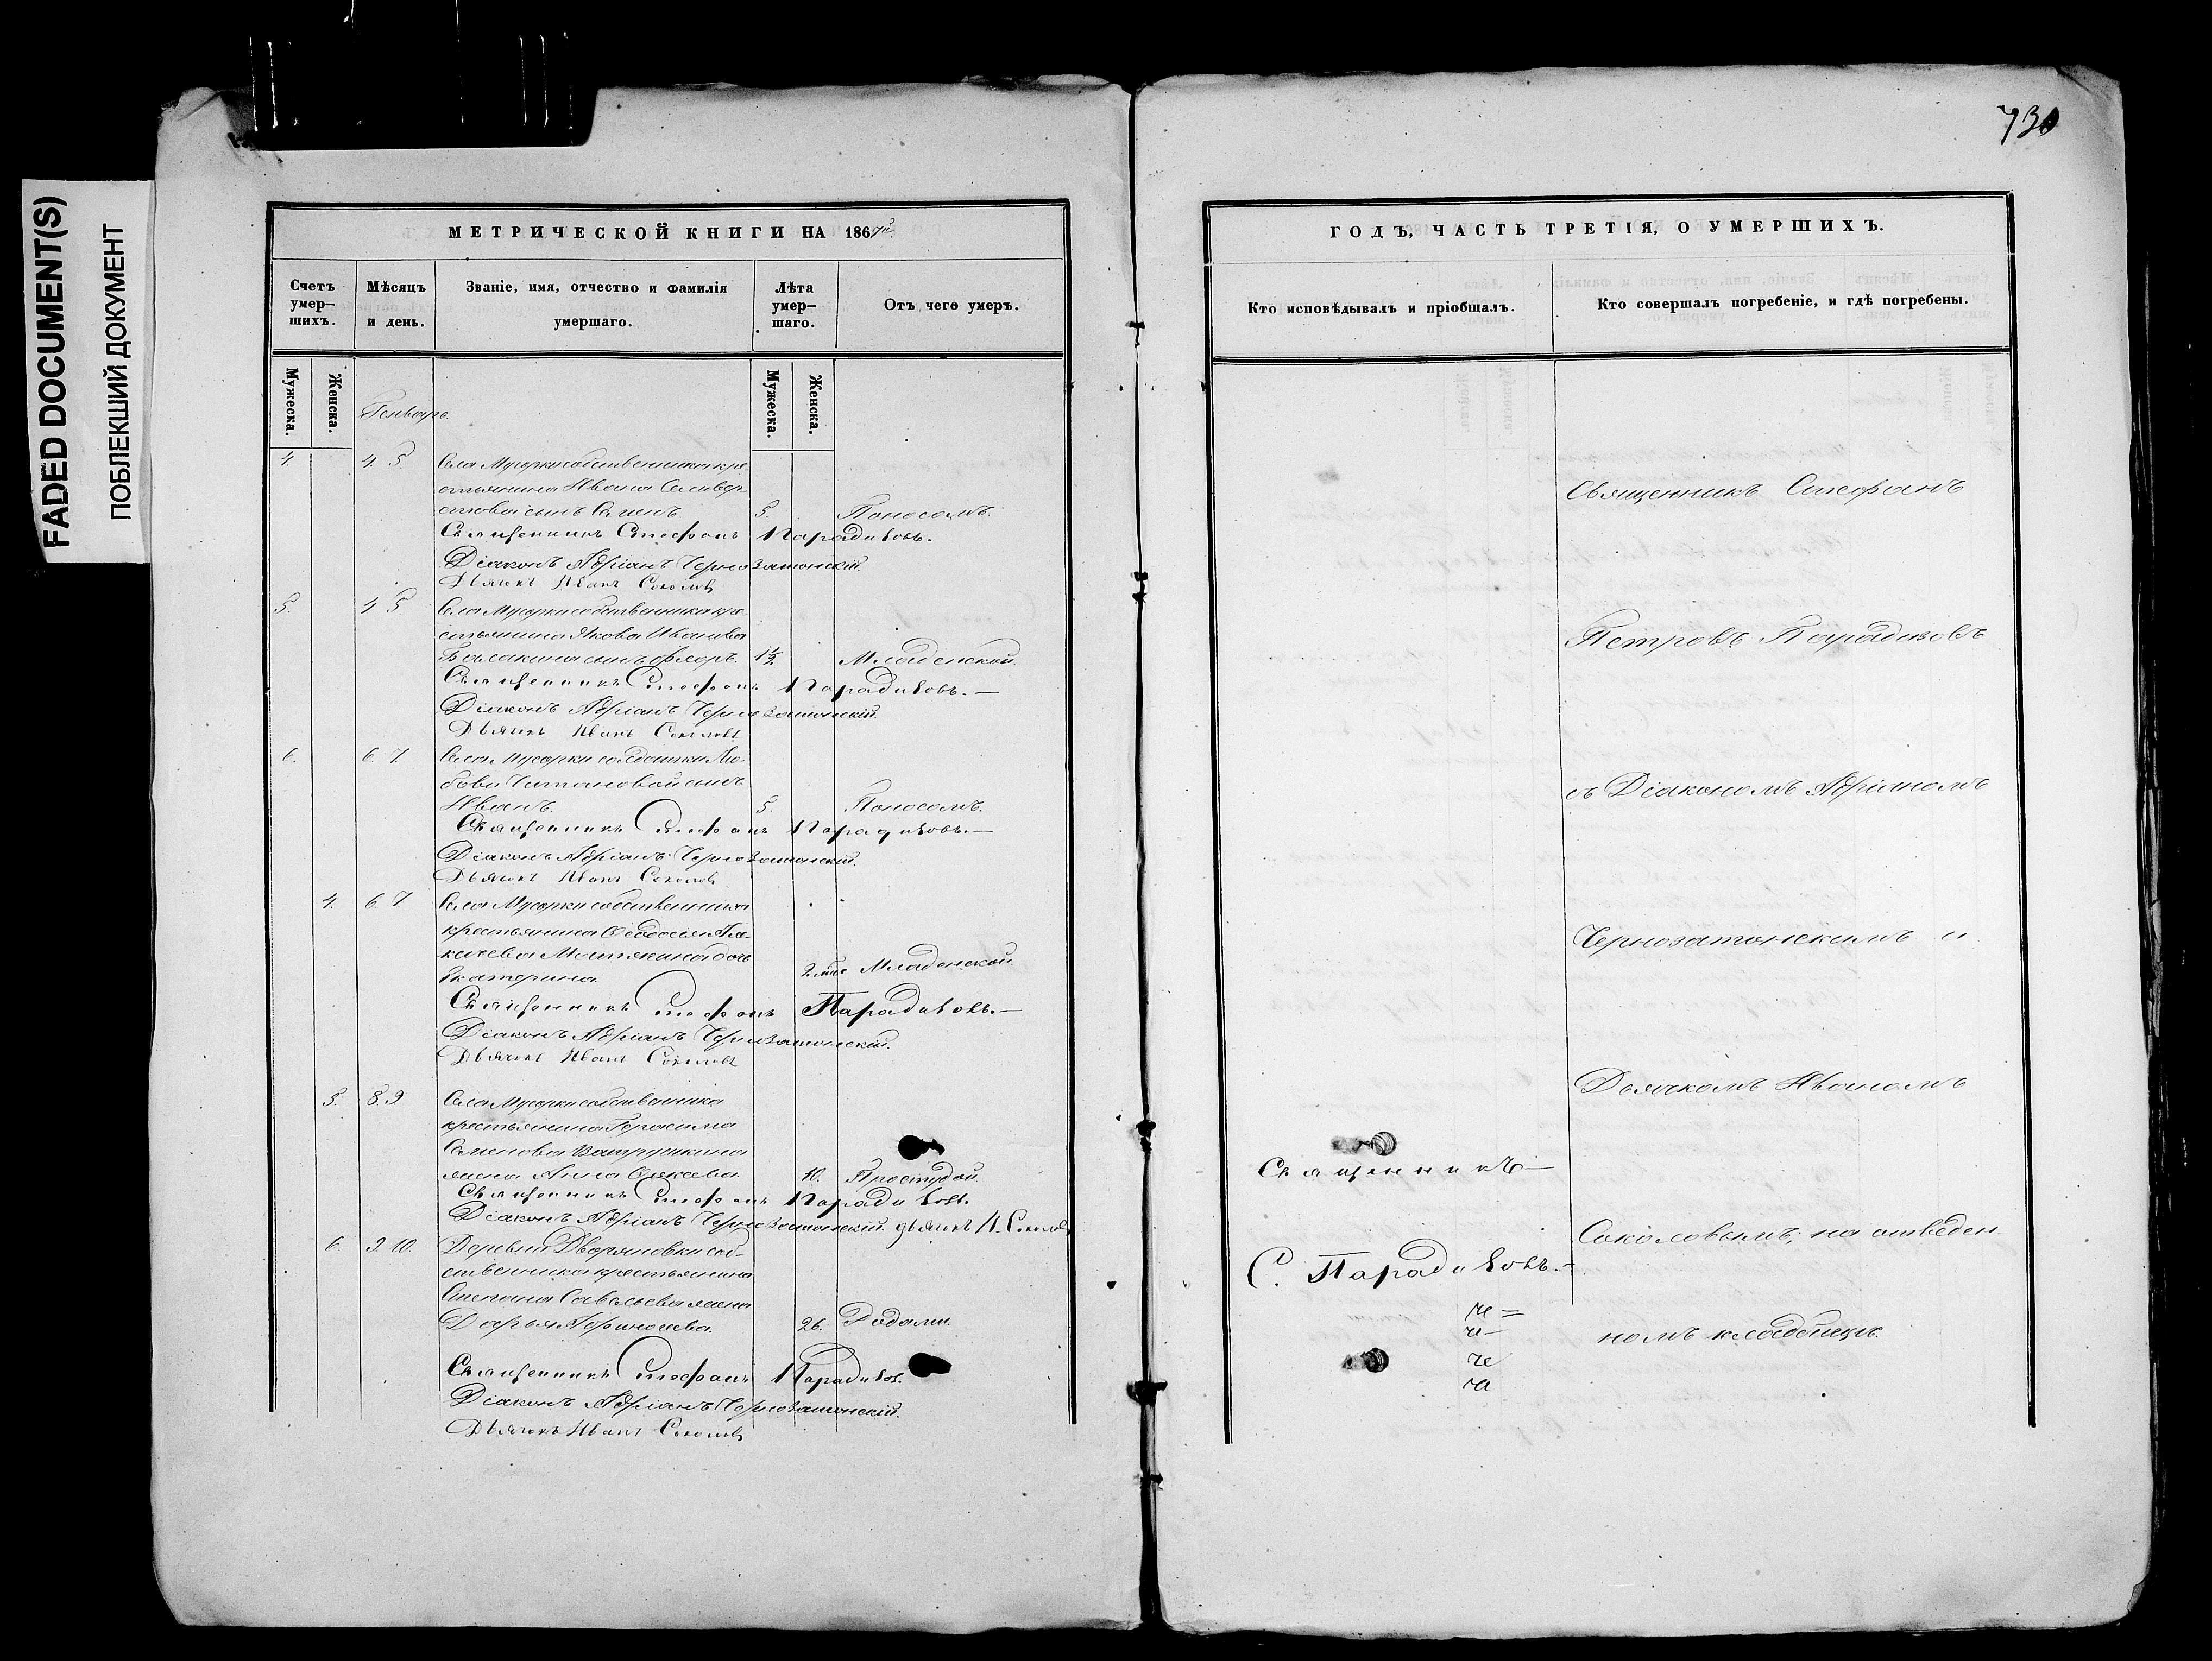 FADED DOCUMENT(S)
ПОБЛЕКШИЙ ДОКУМЕНТ
МЕТРИЧЕСКОЙ КНИГИ НА 1867й
Счетъ умер-шихъ.
Мѣсяцъ и день.
Званіе, имя, отчество и фамилія умершаго.
Лѣта умер-шаго.
Отъ чего умеръ.
Мужеска.
Женска.
Мужеска.
Женска.
Генварь.
4. 4. 5. Села Мусорки собственника кре
стьянина Ивана Селивер
стова сынъ Семенъ. 5. Поносомъ.
Священникъ Стефанъ Парадизовъ.
Діаконъ Адріанъ Чернозатонскій.
Дьячекъ Иванъ Соколовъ
5. 4 5 Села Мусорки собственника кре
стьянина Якова Иванова
Балакина сынъ Флоръ. 1½ Младенской.
Священникъ Стефанъ Парадизовъ.—
Діаконъ Адріанъ Чернозатонскій.
Дьячекъ Иванъ Соколовъ
6. 6. 7. Села Мусорки солдатки Лю-
бови сынъ
Иванъ. 5. Поносомъ.
Священникъ Стефанъ Парадизовъ.—
Діаконъ Адріанъ Чернозатонскій.
Дьячекъ Иванъ Соколовъ
4. 6 7. Села Мусорки собственника
крестьянина Ѳеодосія
дочь
Екатерина. Младенской
Священникъ Стефанъ Парадизовъ.—
Діаконъ Адріанъ Чернозатонскій.
Дьячекъ Иванъ Соколовъ
5. 8 9. Села Мусорки собственника
крестьянина Герасима
Семенова Ватрушкина
жена Анна 10. Простудой.
Священникъ Стефанъ Парадизовъ.
Діаконъ Адріанъ Чернозатонскій. дьячекъ И. Соколовъ
6. 9. 10. Деревни Дворяновки соб-
ственника крестьянина
Степана Савельева жена
Дарья 26. Родами.
Священникъ Стефанъ Парадизов.
Діаконъ Адріанъ Чернозатонскій.
Дьячекъ Иванъ Соколовъ
730
ГОДЪ, ЧАСТЬ ТРЕТІЯ, О УМЕРШИХЪ.
Кто исповѣдывалъ и пріобщалъ.
Кто совершалъ погребеніе, и гдѣ погребены.
Священникъ Стефанъ
Петровъ Парадизовъ
съ Діакономъ Адріаномъ
Чернозатонскимъ и
Дьячкомъ Иваномъ
Священникъ—
Соколовымъ, на отведен
С. Парадизовъ.—
номъ кладбищѣ.